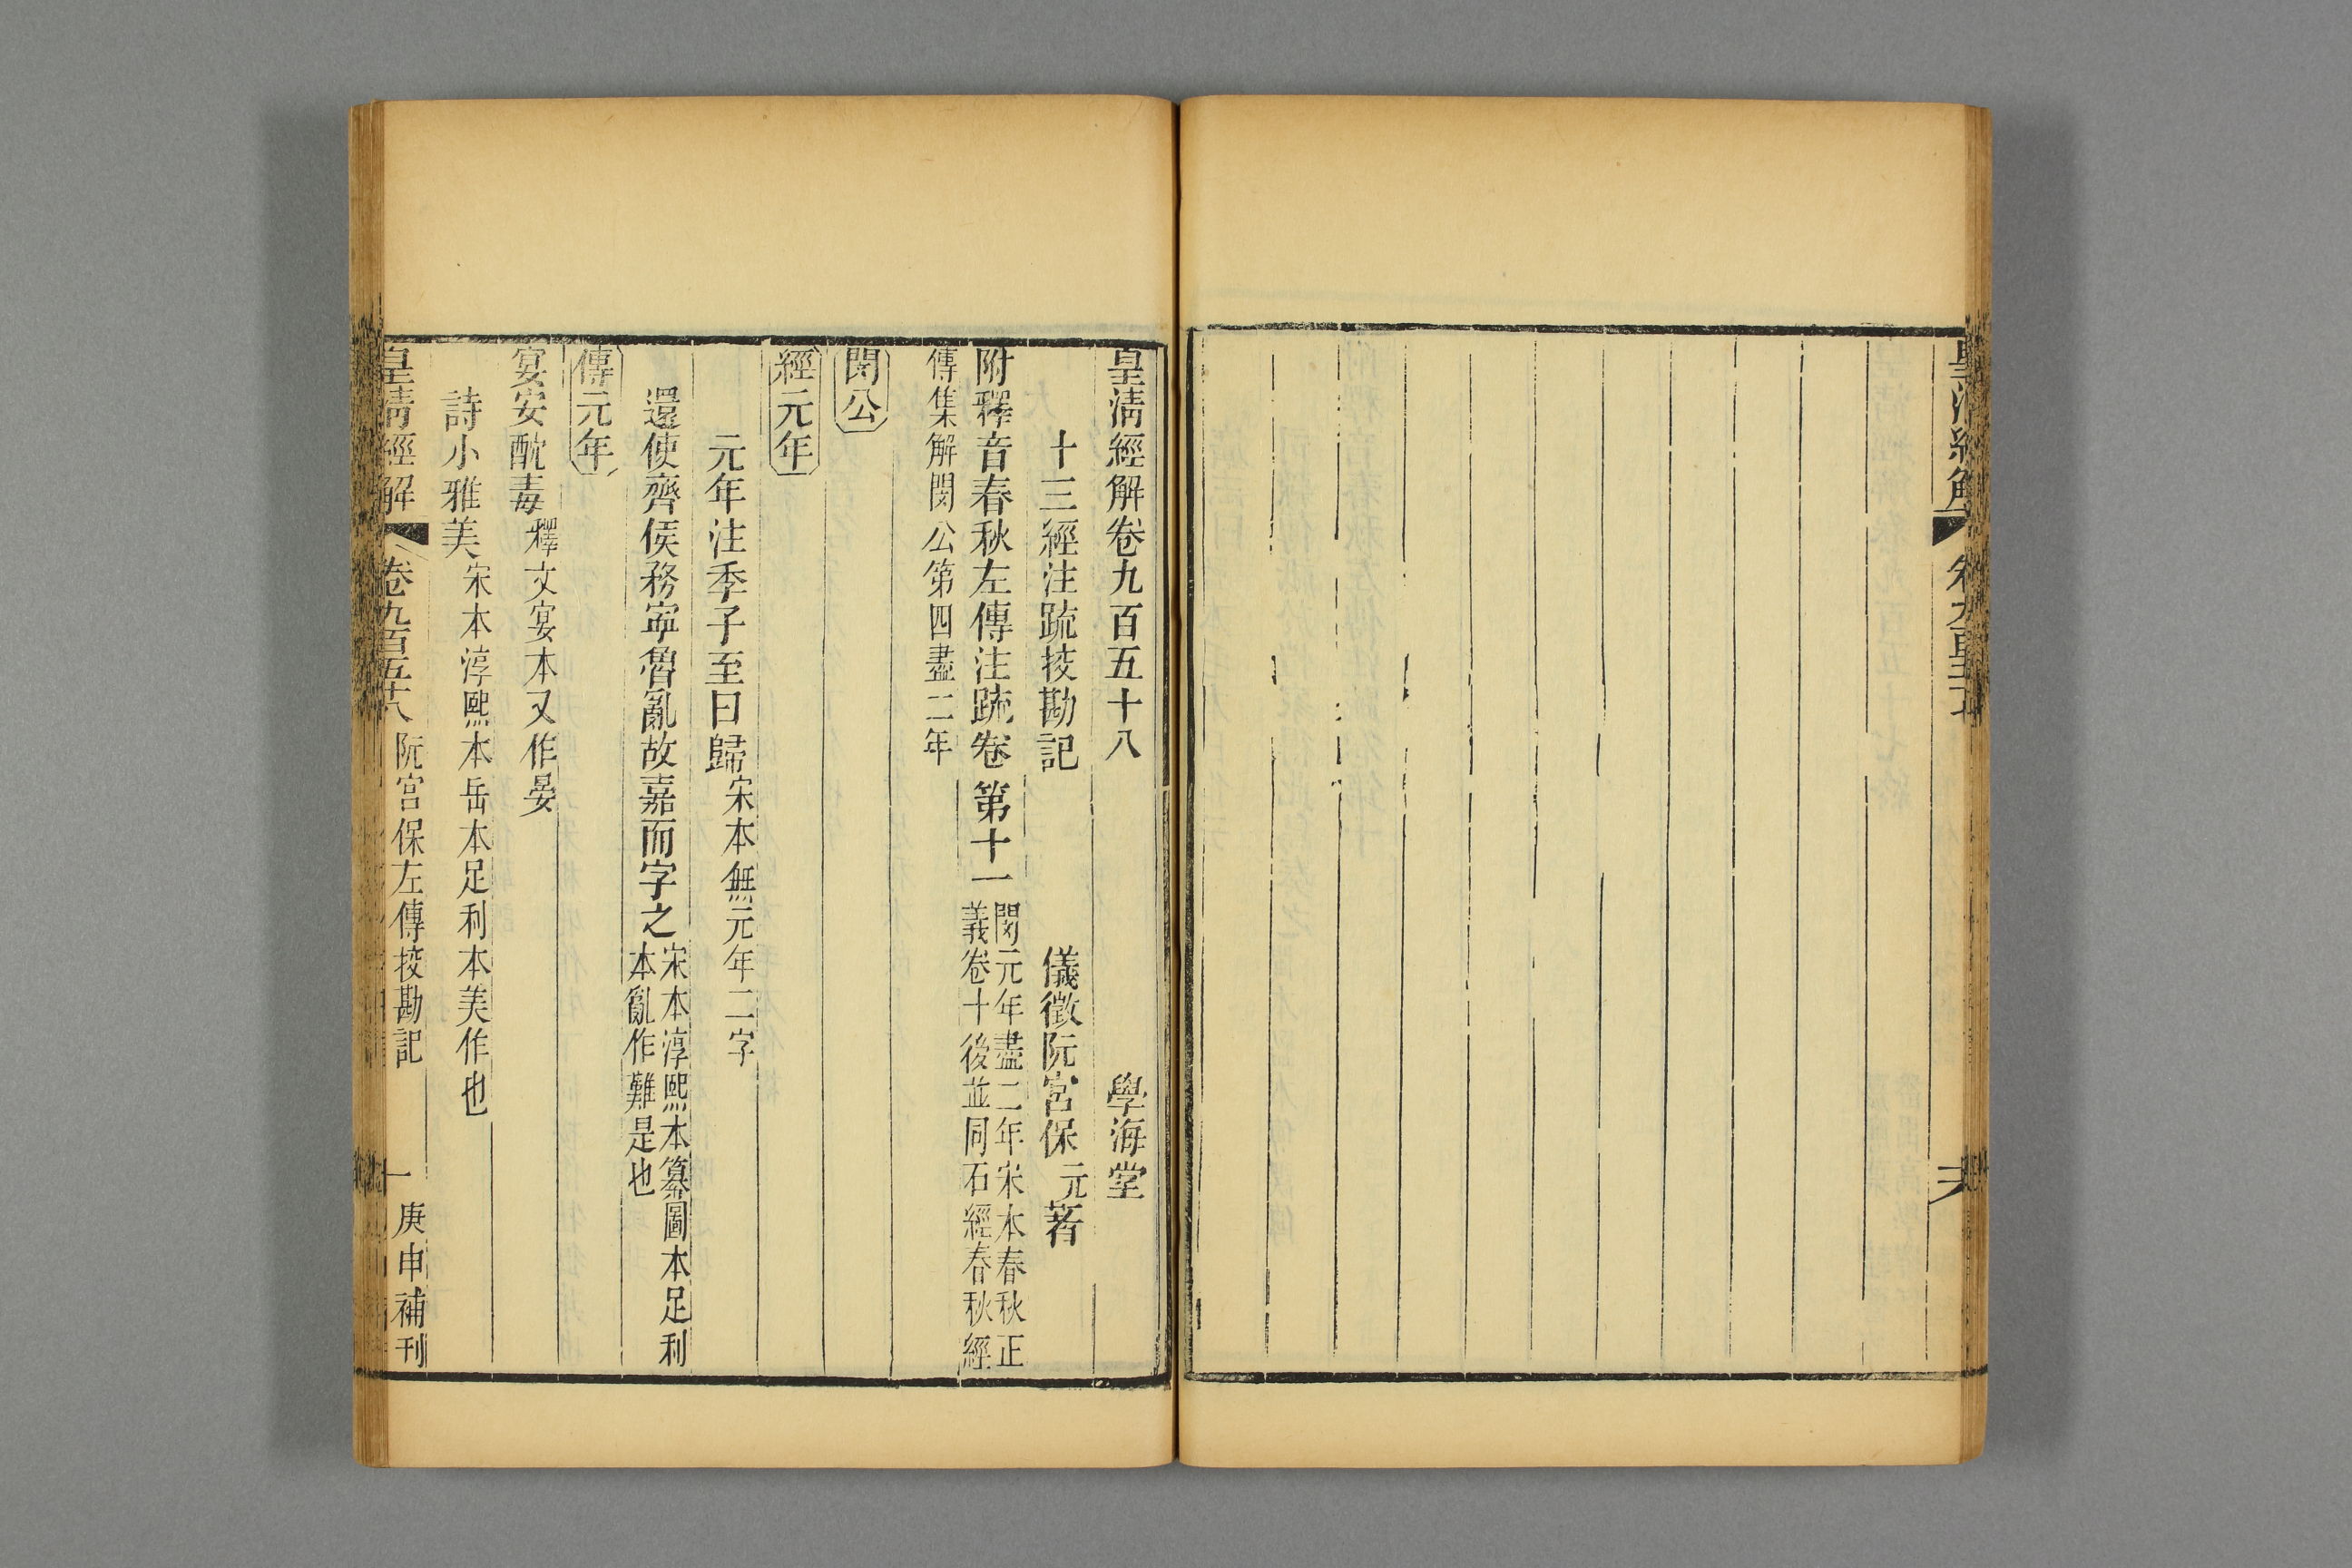 皇清經解
皇清經解卷九百五十八 學海堂
十三經注䟽挍勘記 儀徵阮宮保元著
附釋音春秋左傳注䟽卷第十一 閔元年盡二年宋本春秋正
義卷十後並同石經春秋經
傳集解閔公第四盡二年
閔公
經元年
元年注季子至曰歸 宋本無元年二字
還使齊侯務寧魯亂故嘉而字之 宋本淳熙本纂圖本足利
本亂作難是也
傳元年
宴安酖毒 釋文宴本又作晏
詩小雅美 宋本淳熙本岳本足利本美作也
皇清經解 卷九百五十八 阮宮保左傳挍勘記 一 庚申補刊